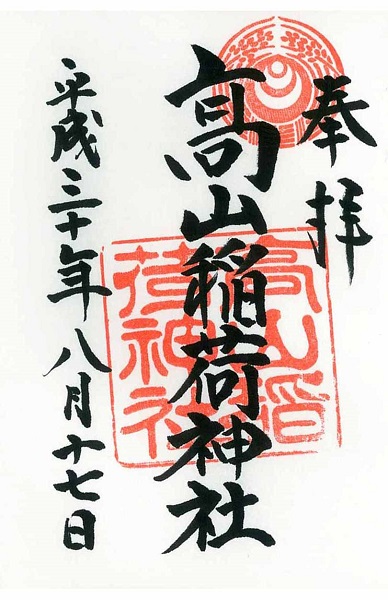 奉拝
髙山稲荷神社
高山稲荷神社
平成三十年八月十七日